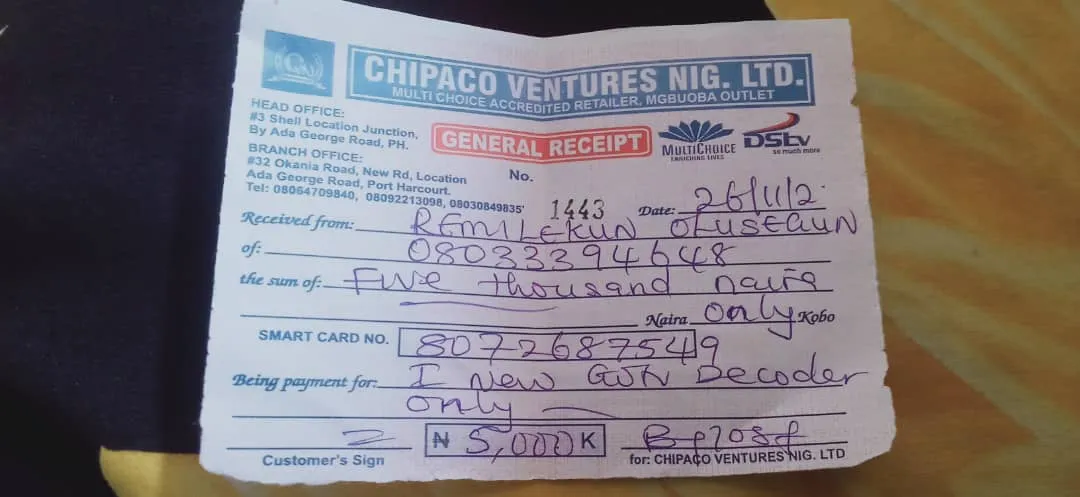 GN
CHIPACO VENTURES NIG. LTD.
MULTI CHOICE ACCREDITED RETAILER, MGBUOBA OUTLET
HEAD OFFICE:
#3 Shell Location Junction,
By Ada George Road, PH.
BRANCH OFFICE:
#32 Okania Road, New Rd, Location
Ada George Road, Port Harcourt.
Tel: 08064709840, 08092213098, 08030849835
GENERAL RECEIPT
MULTICHOICE
ENRICHING LIVES
DStv
so much more
No. 1443
Date: 26/11/2
Received from: REMILEKUN OLUSEGUN
of: 08033394648
the sum of: Five thousand naira
Naira only Kobo
SMART CARD NO. 8072687549
Being payment for: I New GOtv Decoder
only
₦ 5,000 K
Customer's Sign
for: CHIPACO VENTURES NIG. LTD